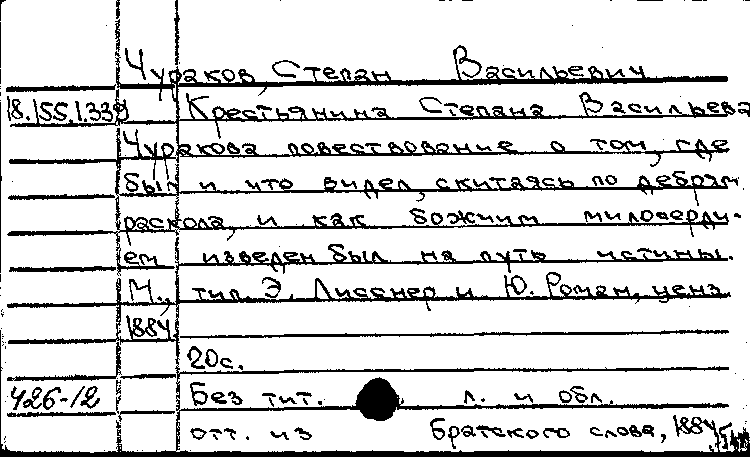 Чураков, Степан Васильевич
18.155.1.339 Крестьянина Степана Васильева
Чуракова повествование о том, где
был и что видел, скитаясь по дебрям
раскола, и как божиим милосерди-
ем изведен был на путь истины.
М., тип. Э. Лисснер и Ю. Роман, ценз.
1884.
20с.
426-12 Без тит. л. и обл.
отт. из Братского слова, 1884